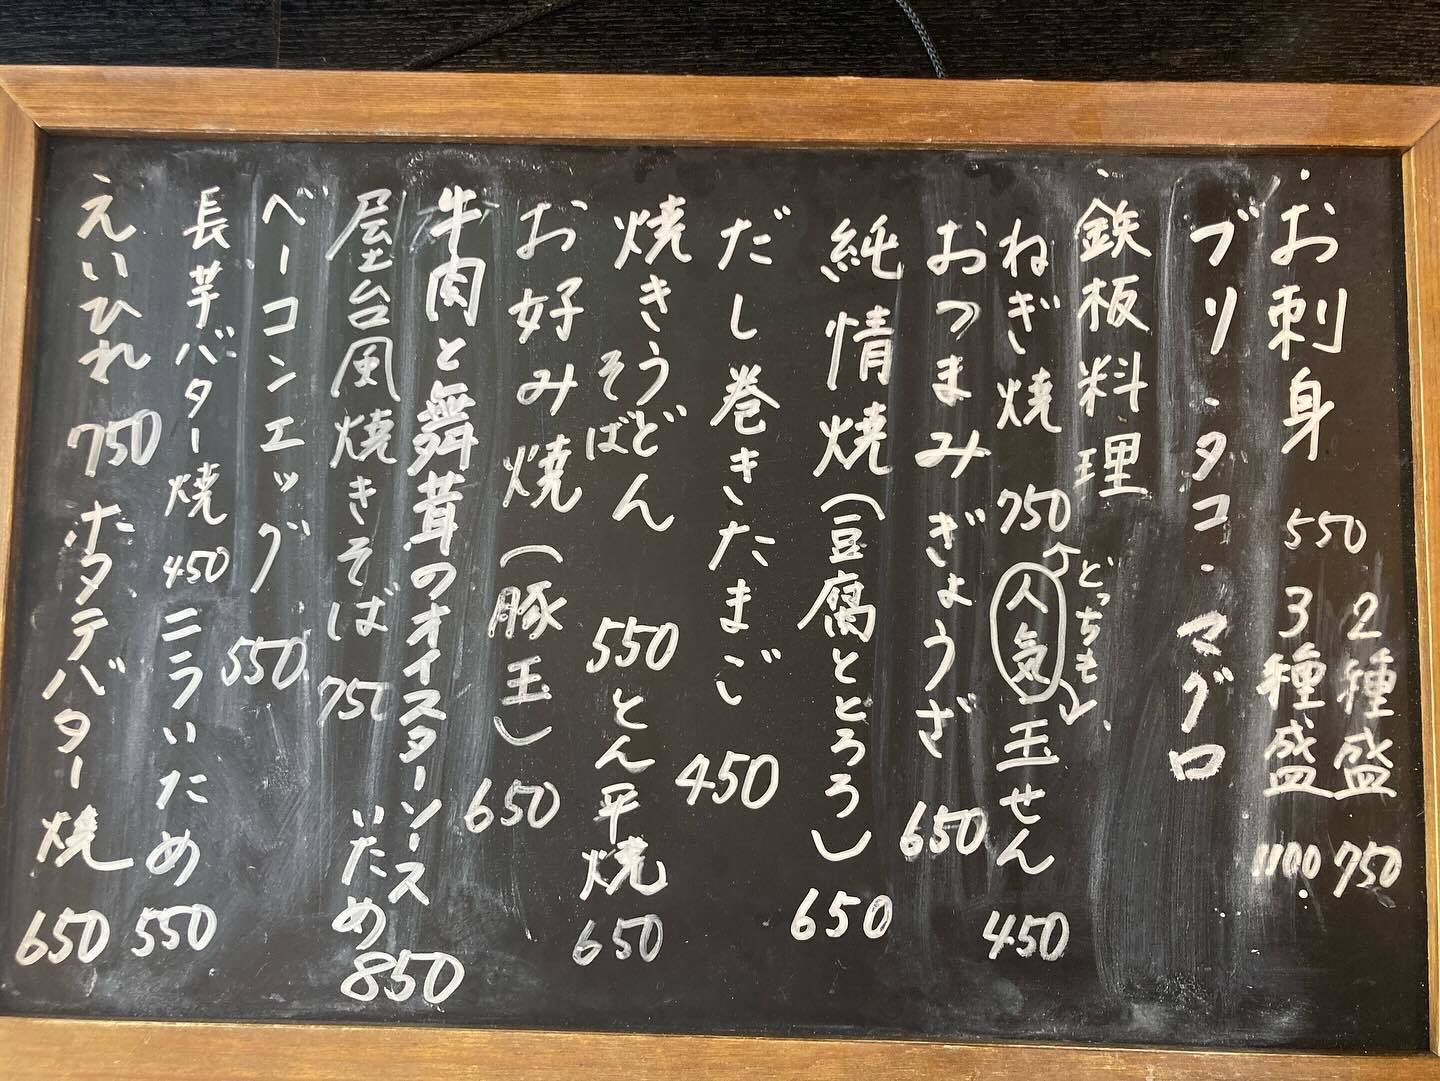 お刺身 550 2種盛 750
3種盛 1100
ブリ・タコ・マグロ
鉄板料理
ねぎ焼 750 人気 玉せん 450
どっちも
おつまみぎょうざ 650
純情焼(豆腐ととろろ) 650
だし巻きたまご 450
焼きうどん 550 とん平焼 650
そば
お好み焼(豚玉) 650
牛肉と舞茸のオイスターソース
いため 850
屋台風焼きそば 750
ベーコンエッグ 550
長芋バター焼 450 ニラいため 550
えいひれ 750 ホタテバター焼 650